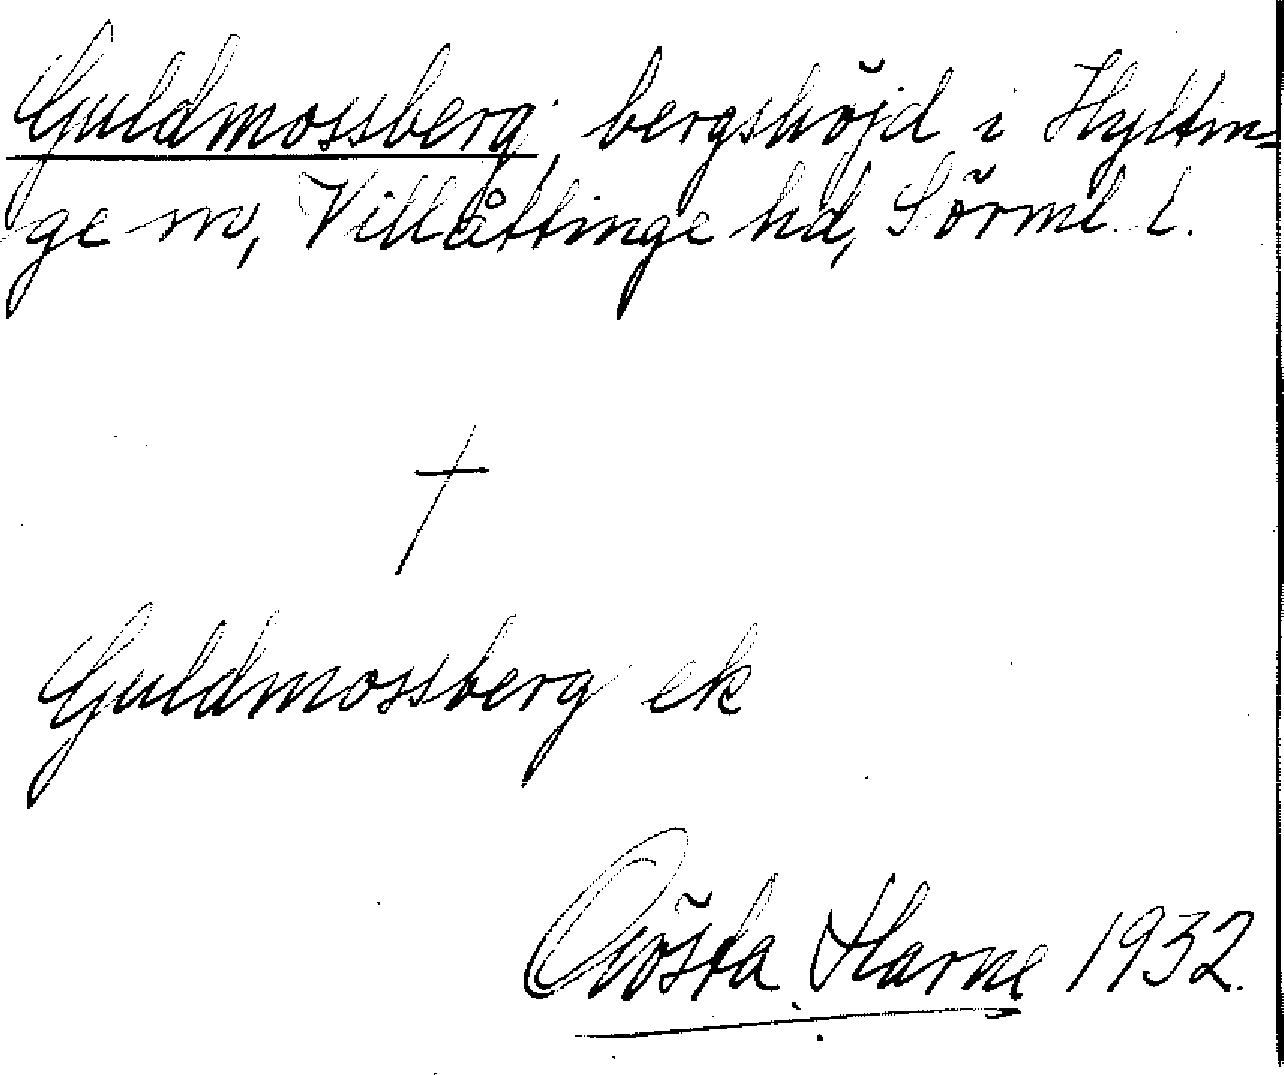 Guldmossberg, bergshöjd i Hyltin-
ge sn, Villåttinge hd, Sörml. l.
†
Guldmossberg ek
Gösta Harne 1932.